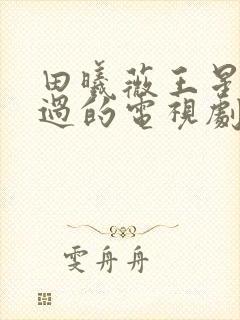 田曦薇王星
過的電視劇
雯舟舟